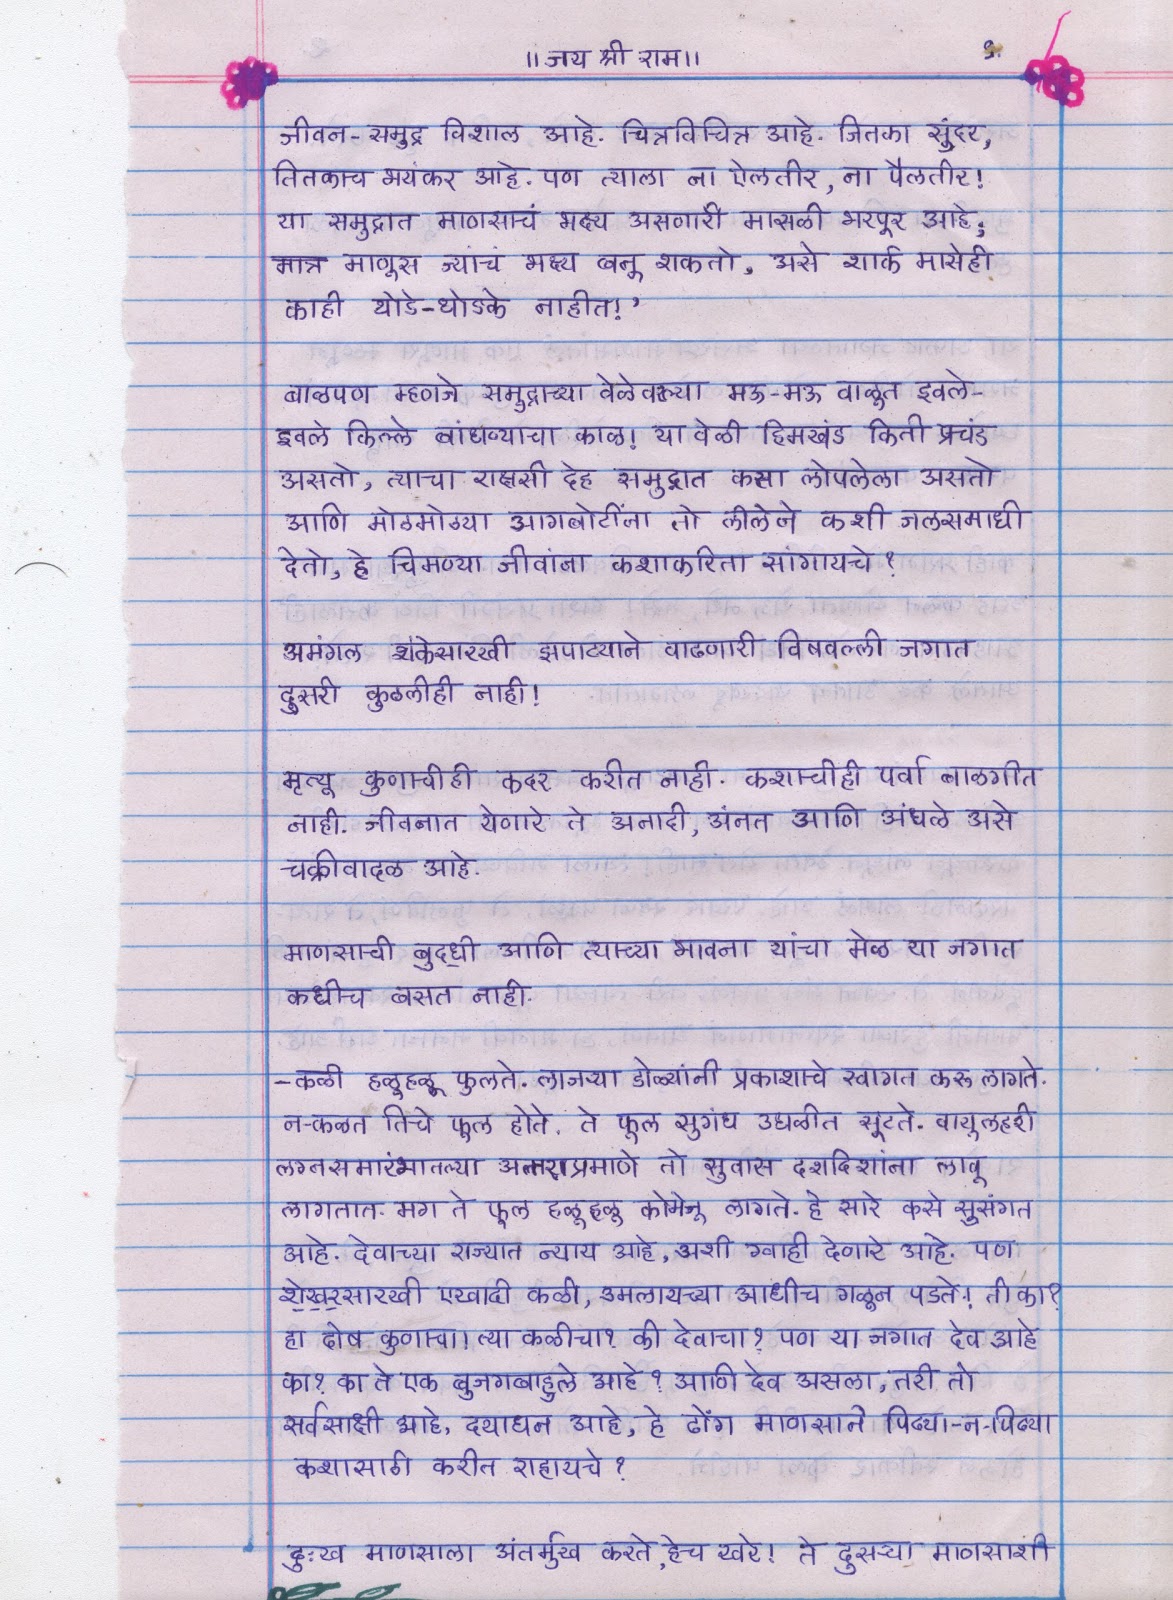 ॥ जय श्री राम॥ १.
जीवन-समुद्र विशाल आहे. चित्रविचित्र आहे. जितका सुंदर,
तितकाच भयंकर आहे. पण त्याला ना ऐलतीर, ना पैलतीर!
या समुद्रात माणसाचं भक्ष्य असणारी मासळी भरपूर आहे;
मात्र माणूस ज्यांचं भक्ष्य बनू शकतो, असे शार्क मासेही
काही थोडे-थोडके नाहीत!'
बाळपण म्हणजे समुद्राच्या वेळेवरल्या मऊ-मऊ वाळूत इवले-
इवले किल्ले बांधण्याचा काळ! या वेळी हिमखंड किती प्रचंड
असतो, त्याचा राक्षसी देह समुद्रात कसा लोपलेला असतो
आणि मोठमोठ्या आगबोटींना तो लीलेने कशी जलसमाधी
देतो, हे चिमण्या जीवांना कशाकरिता सांगायचे?
अमंगल शंकेसारखी झपाट्याने वाढणारी विषवल्ली जगात
दुसरी कुठलीही नाही!
मृत्यू कुणाचीही कदर करीत नाही. कशाचीही पर्वा बाळगीत
नाही. जीवनात येणारे ते अनादी, अंनत आणि अंधळे असे
चक्रीवादळ आहे.
माणसाची बुद्धी आणि त्याच्या भावना यांचा मेळ या जगात
कधीच बसत नाही.
-कळी हळूहळू फुलते. लाजऱ्या डोळ्यांनी प्रकाशाचे स्वागत करू लागते.
न-कळत तिचे फूल होते. ते फूल सुगंध उधळीत सूटते. वायुलहरी
लग्नसमारंभातल्या अत्तराप्रमाणे तो सुवास दशदिशांना लावू
लागतात. मग ते फूल हळूहळू कोमेजू लागते. हे सारे कसे सुसंगत
आहे. देवाच्या राज्यात न्याय आहे, अशी ग्वाही देणारे आहे. पण
शेखरसारखी एखादी कळी, उमलायच्या आधीच गळून पडते! ती का?
हा दोष कुणाचा! त्या कळीचा? की देवाचा? पण या जगात देव आहे
का? का ते एक बुजगबाहुले आहे? आणि देव असला, तरी तो
सर्वसाक्षी आहे, दयाघन आहे, हे ढोंग माणसाने पिढ्या-न-पिढ्या
कशासाठी करीत राहायचे?
दुःख माणसाला अंतर्मुख करते, हेच खरे! ते दुसऱ्या माणसाशी